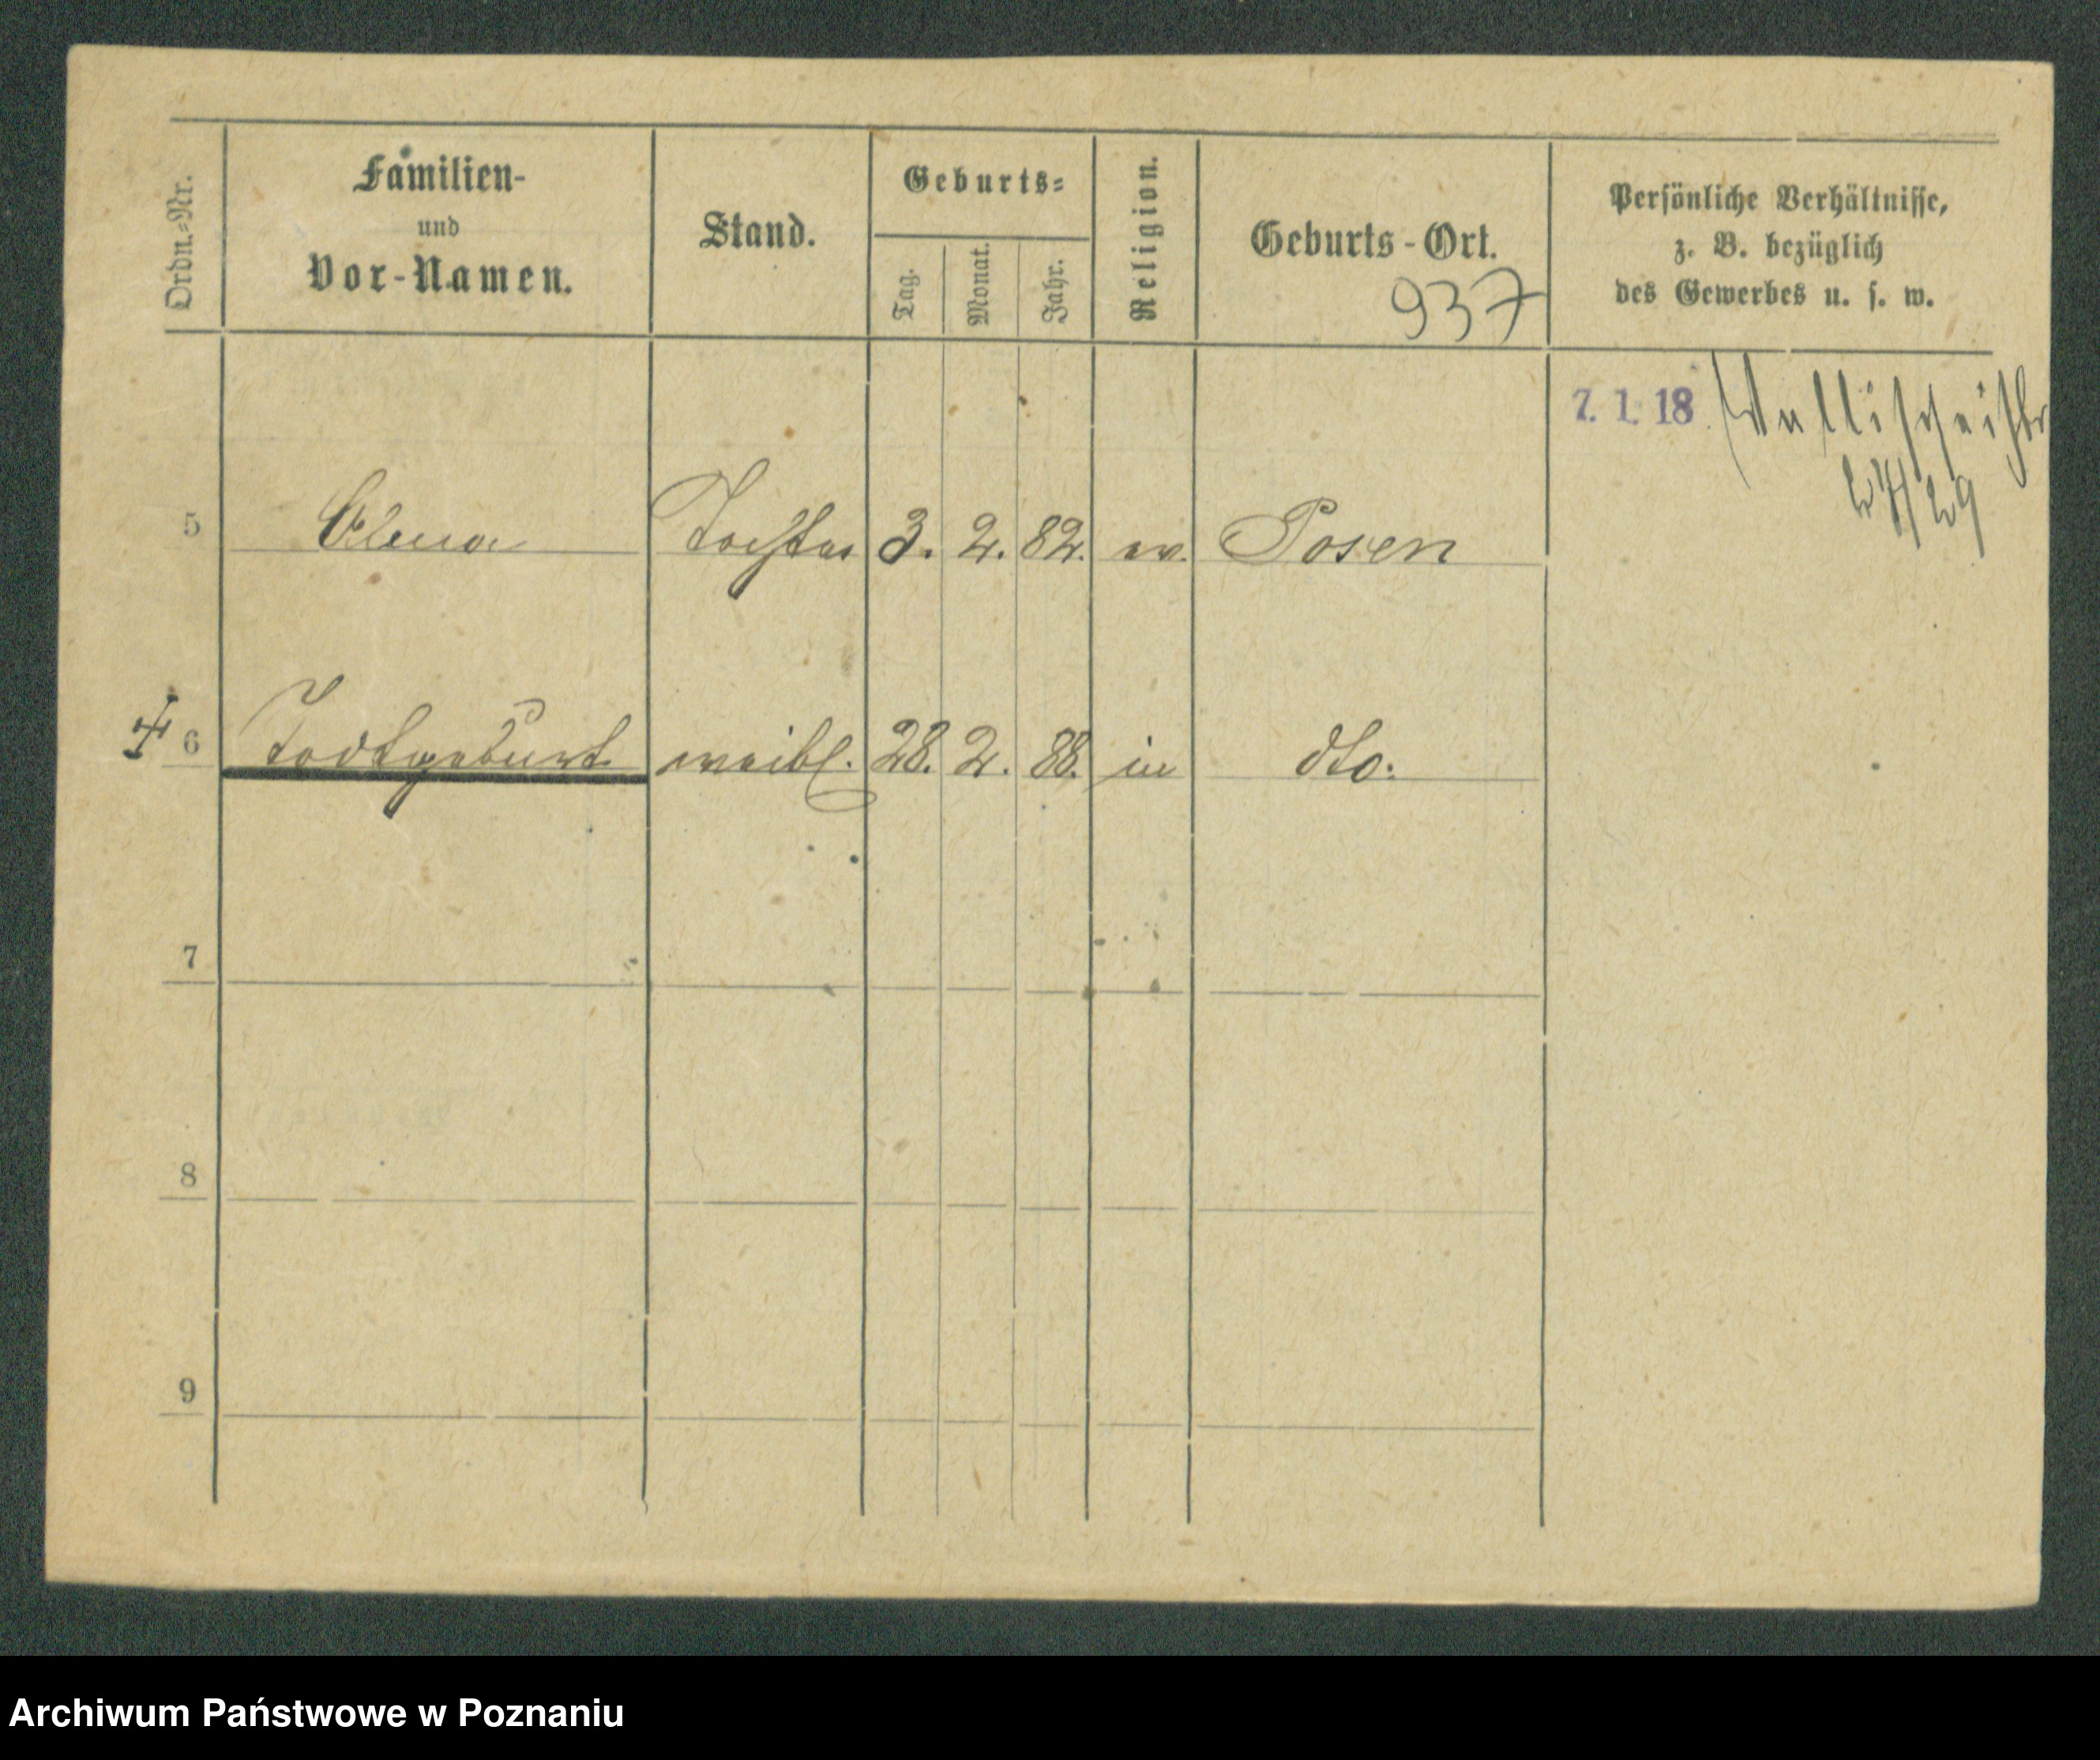 Ordn.-Nr.
Familien-
und
Vor-Namen.
Stand.
Geburts-
Tag.
Monat.
Jahr.
Religion.
Geburts-Ort.
937
Persönliche Verhältnisse,
z. B. bezüglich
des Gewerbes u. s. w.
7. 1. 18 Wallischeistr
27/29
5 Elena Tochter 3. 2. 82. ev. Posen
6 Todtgeburt weibl. 28. 2. 88. in dto.
7
8
9
Archiwum Państwowe w Poznaniu